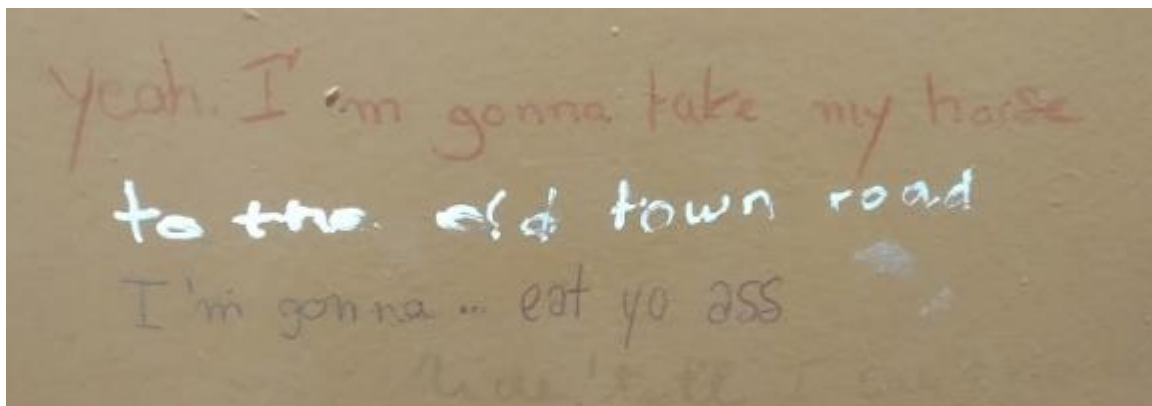 yeah. I'm gonna take my horse
to the old town road
I'm gonna... eat yo ass
I